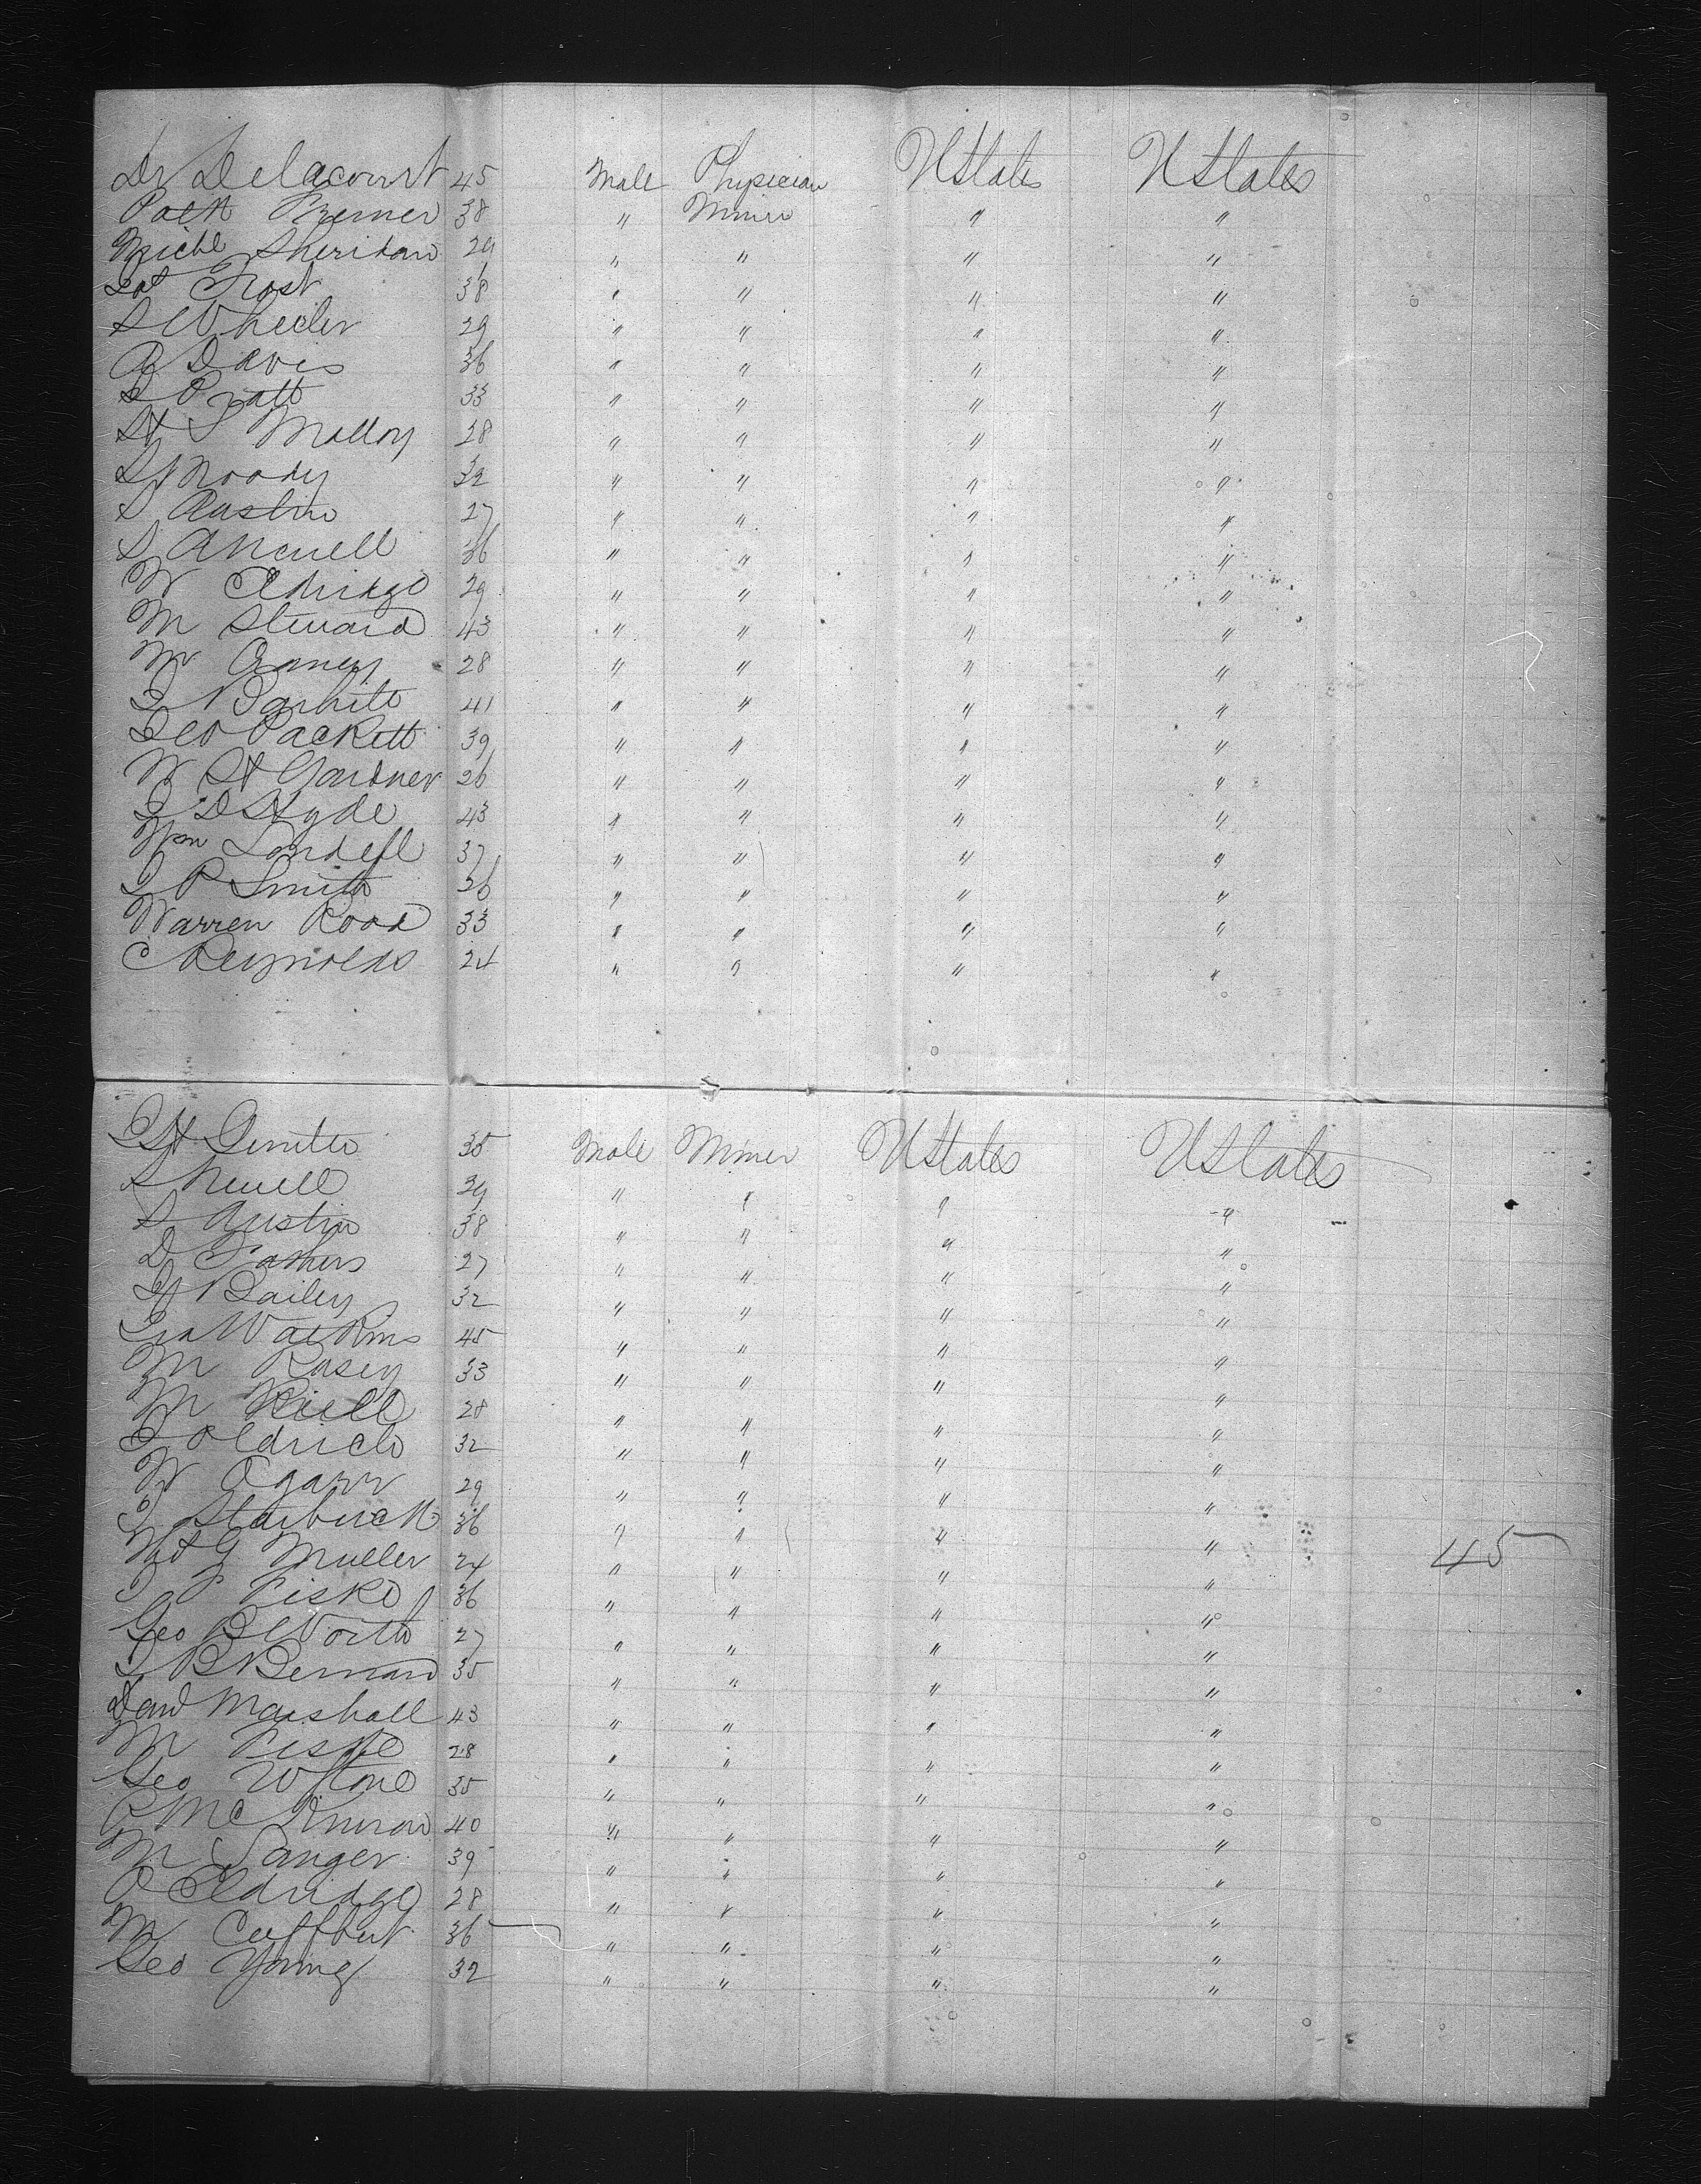 Dr Delacourt 45 Male Physician UStates UStates
Patk Premer 38 " Miner " "
Michl Sheridan 29 " " " "
Pat Frost 38 " " " "
S Wheeler 29 " " " "
A Davis 36 " " " "
S Pratt 33 " " " "
H S Malloy 28 " " " "
S Moody 32 " " " "
S Austin 27 " " " "
S A Newell 36 " " " "
W Eldridge 29 " " " "
M Steward 43 " " " "
M 28 " " " "
J Barhite 41 " " " "
Geo Packett 39 " " " "
W H Gardner 26 " " " "
J D Hyde 43 " " " "
Wm Londell 37 " " " "
J P Smith 26 " " " "
Warren Rood 33 " " " "
C Reynolds 24 " " " "
35 Male Miner UStates UStates
S Newell 39 " " " "
S Austin 38 " " " "
D 27 " " " "
H Bailey 32 " " " "
Geo Watkins 45 " " " "
M Rosey 33 " " " "
M 28 " " " "
J Oldrich 32 " " " "
W Ogarr 29 " " " "
J Starbuck 36 " " " "
Wm G Muller 24 " " " " 45
J F Fiske 36 " " " "
Geo B Worth 27 " " " "
J B Bernard 35 " " " "
Davd Marshall 43 " " " "
M Fiske 28 " " " "
Geo W Stone 35 " " " "
Mc 40 " " " "
M Sanger 39 " " " "
A Eldridge 28 " " " "
M Cuffbert 36 " " " "
Geo Young 32 " " " "